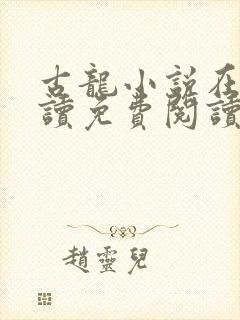 古龍小說在
讀免費閱讀
趙靈兒